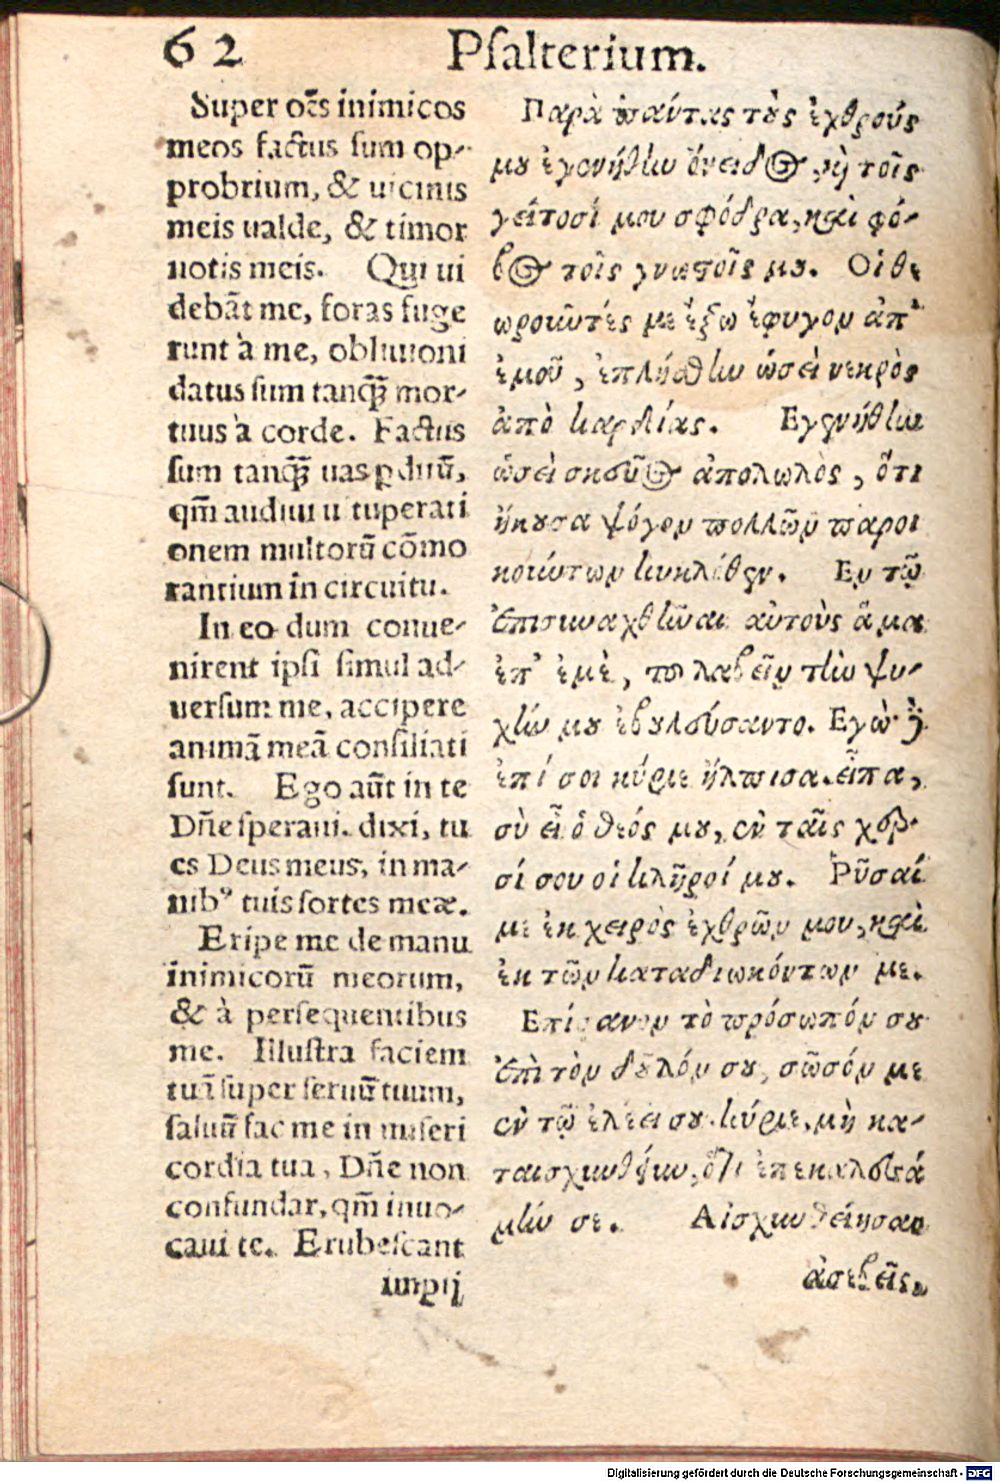 62 Psalterium.
Super oēs inimicos
meos factus sum op-
probrium, & uicinis
meis ualde, & timor
notis meis. Qui ui
debāt me, foras fuge
runt à me, obliuioni
datus sum tanq̄ mor-
tuus à corde. Factus
sum tanq̄ uas ꝑditū,
qm̄ audiui uituperati
onem multorū cōmo
rantium in circuitu.
In eo dum conue-
nirent ipsi simul ad-
uersum me, accipere
animā meā consiliati
sunt. Ego aūt in te
Dn̄e speraui. dixi, tu
es Deus meus, in ma-
nibꝰ tuis sortes meæ.
Eripe me de manu
inimicorū meorum,
& à persequentibus
me. Illustra faciem
tuā super seruū tuum,
saluū fac me in miseri
cordia tua, Dn̄e non
confundar, qm̄ inuo-
caui te. Erubescant
impij
Παρὰ πάντας τοὺς ἐχθρούς
μου ἐγενήθην ὄνειδος, καὶ τοῖς
γείτοσί μου σφόδρα, καὶ φό-
βος τοῖς γνωστοῖς μου. Οἱ θε
ωροῦντές με ἔξω ἔφυγον ἀπ'
ἐμοῦ, ἐπλήσθην ὡσεὶ νεκρὸς
ἀπὸ καρδίας. Εγενήθην
ὡσεὶ σκεῦος ἀπολωλὸς, ὅτι
ἤκουσα ψόγον πολλῶν παροι
κούντων κυκλόθεν. Εν τῷ
ἐπισυναχθῆναι αὐτοὺς ἅμα
ἐπ' ἐμὲ, τοῦ λαβεῖν τὴν ψυ-
χήν μου ἐβουλεύσαντο. Εγὼ δὲ
ἐπί σοι κύριε ἤλπισα. εἶπα,
σὺ εἶ ὁ θεός μου, ἐν ταῖς χερ-
σί σου οἱ κλῆροί μου. Ῥῦσαί
με ἐκ χειρὸς ἐχθρῶν μου, καὶ
ἐκ τῶν καταδιωκόντων με.
Επίφανον τὸ πρόσωπόν σου
ἐπὶ τὸν δοῦλόν σου, σῶσόν με
ἐν τῷ ἐλέει σου. κύριε, μὴ κα-
ταισχυνθείην, ὅτι ἐπεκαλεσά
μην σε. Αἰσχυνθείησαν
ἀσεβεῖς,
Digitalisierung gefördert durch die Deutsche Forschungsgemeinschaft - DFG